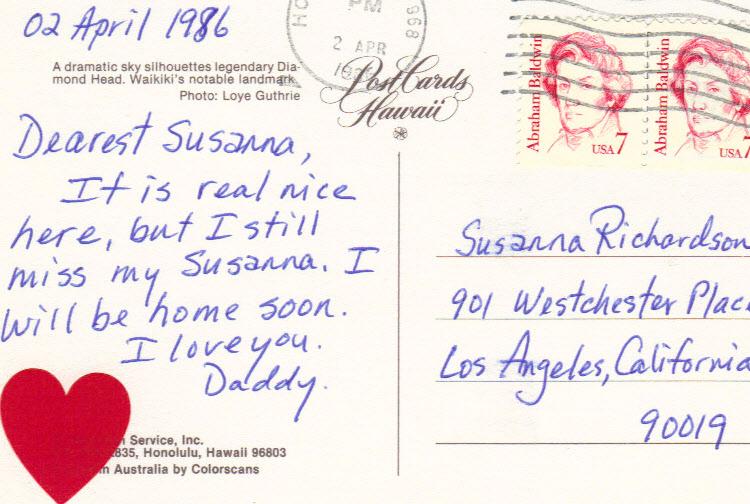 02 April 1986
A dramatic sky silhouettes legendary Dia-
mond Head. Waikiki's notable landmark
Photo: Loye Guthrie
PM
2 APR
968
PostCards
Hawaii
Abraham Baldwin
USA 7
Abraham Baldwin
USA 7
Dearest Susanna,
It is real nice
here, but I still
miss my Susanna. I
will be home soon.
I love you.
Daddy.
Susanna Richardson
901 Westchester Plac
Los Angeles, California
90019
Service, Inc.
835, Honolulu, Hawaii 96803
Australia by Colorscans